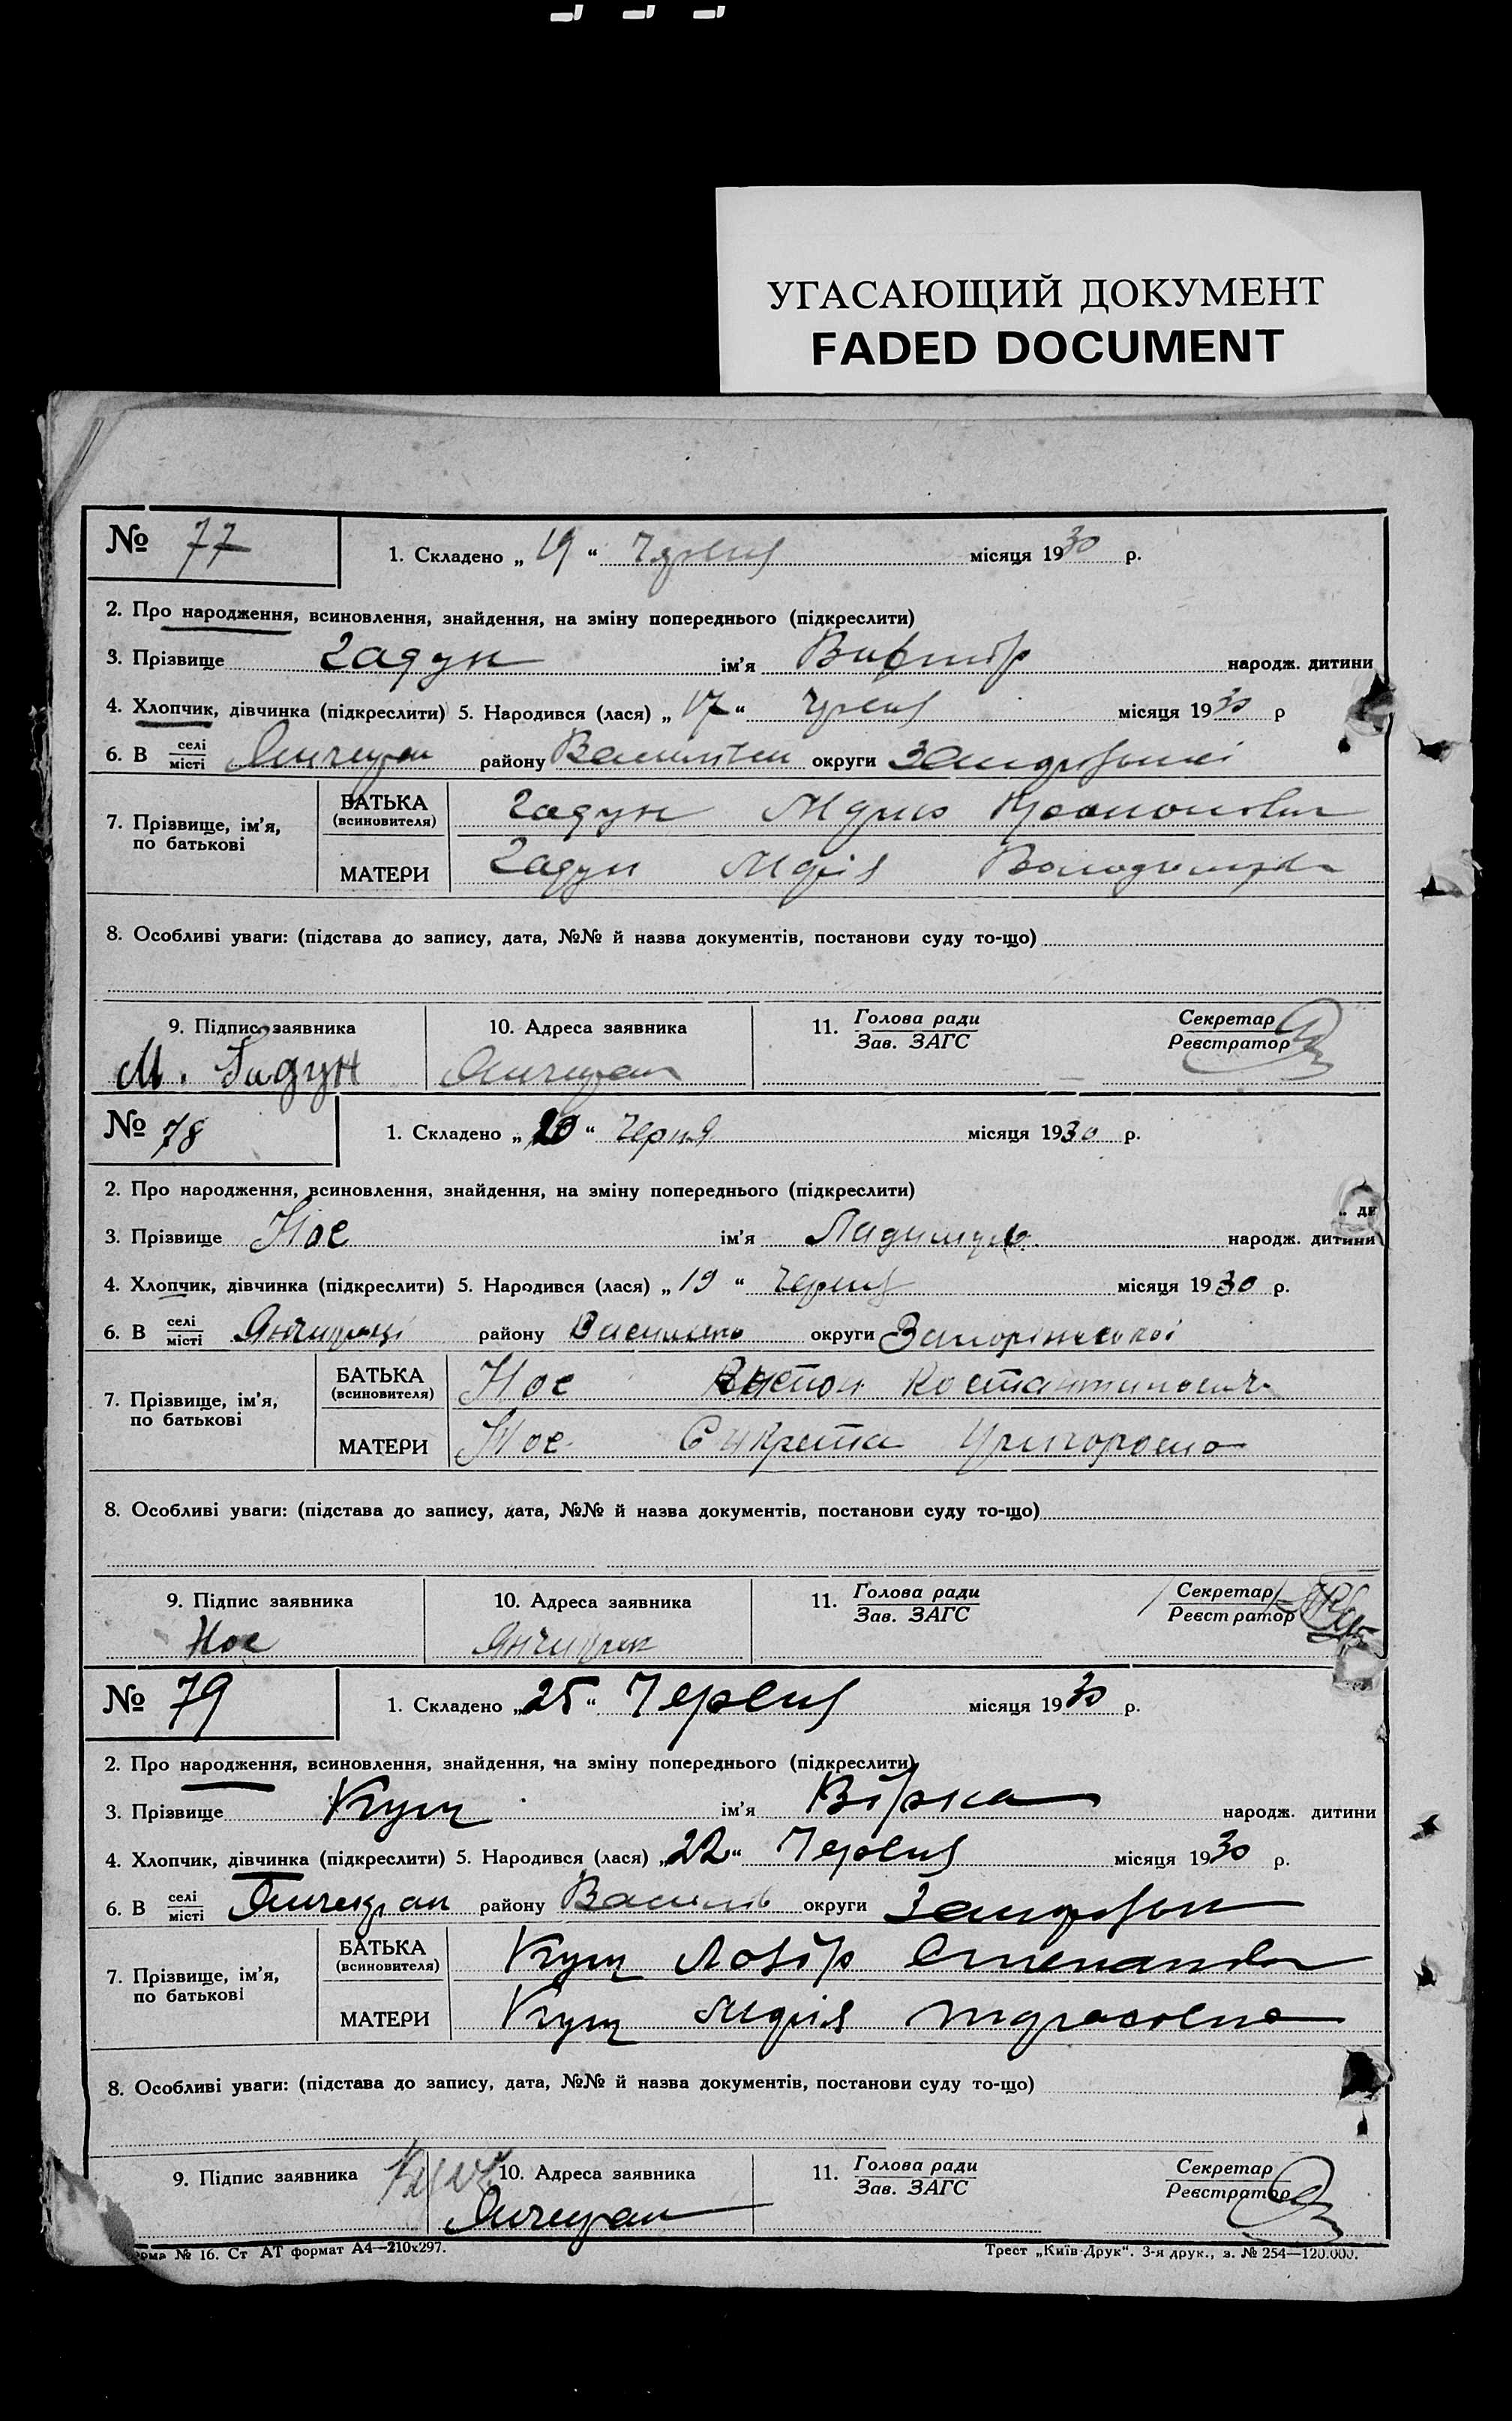 УГАСАЮЩИЙ ДОКУМЕНТ
FADED DOCUMENT
№ 77
1. Складено „ 19 “ Червня місяця 1930 р.
2. Про народження, всиновлення, знайдення, на зміну попереднього (підкреслити)
3. Прізвище Гадун ім'я Віктор народж. дитини
4. Хлопчик, дівчинка (підкреслити) 5. Народився (лася) „ 17 “ Червня місяця 1930 р
6. В селі місті Янчекрак району округи
7. Прізвище, ім'я, по батькові
БАТЬКА (всиновителя) Гадун
МАТЕРИ Гадун Марія
8. Особливі уваги: (підстава до запису, дата, №№ й назва документів, постанови суду то-що)
9. Підпис заявника 10. Адреса заявника 11. Голова ради Зав. ЗАГС Секретар Реєстратор
М. Гадун Янчекрак
№ 78
1. Складено „ 20 “ Черня місяця 1930 р.
2. Про народження, всиновлення, знайдення, на зміну попереднього (підкреслити)
3. Прізвище Ное ім'я народж. дитини
4. Хлопчик, дівчинка (підкреслити) 5. Народився (лася) „ 19 “ Червня місяця 1930 р.
6. В селі місті району округи Запоріжської
7. Прізвище, ім'я, по батькові
БАТЬКА (всиновителя) Ное Костантинович
МАТЕРИ Ное
8. Особливі уваги: (підстава до запису, дата, №№ й назва документів, постанови суду то-що)
9. Підпис заявника 10. Адреса заявника 11. Голова ради Зав. ЗАГС Секретар Реєстратор
Ное Янчикрак
№ 79
1. Складено „ 25 “ Червня місяця 1930 р.
2. Про народження, всиновлення, знайдення, на зміну попереднього (підкреслити)
3. Прізвище Кущ ім'я Вірка народж. дитини
4. Хлопчик, дівчинка (підкреслити) 5. Народився (лася) „ 22 “ Червня місяця 1930 р.
6. В селі місті Янчекрак району округи
7. Прізвище, ім'я, по батькові
БАТЬКА (всиновителя) Кущ
МАТЕРИ Кущ Марія
8. Особливі уваги: (підстава до запису, дата, №№ й назва документів, постанови суду то-що)
9. Підпис заявника 10. Адреса заявника 11. Голова ради Зав. ЗАГС Секретар Реєстратор
Кущ Янчекрак
№ 16. Ст АТ формат А4—210х297. Трест „Київ-Друк“. 3-я друк., з. № 254—120.000.